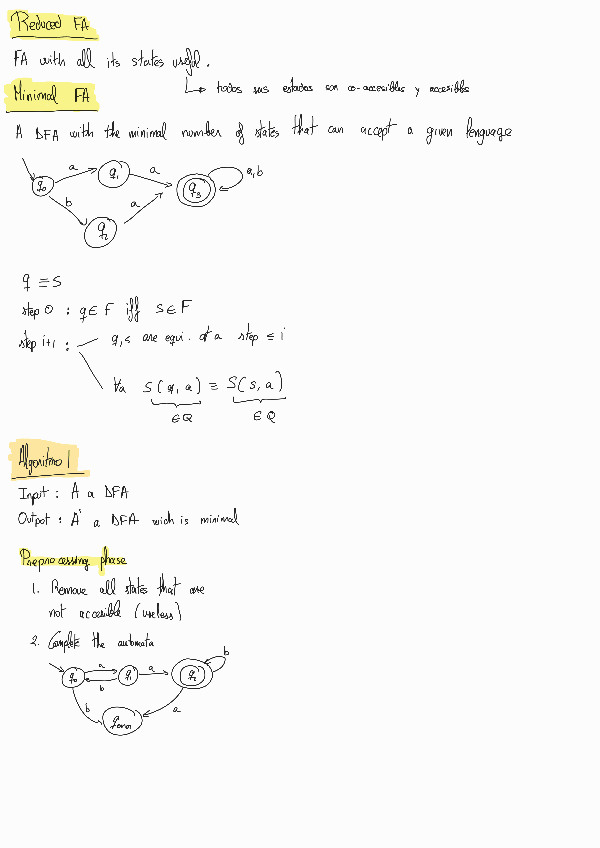 Reduced FA
FA with all its states useful.
↳ todos sus estados son co-accesibles y accesibles
Minimal FA
A DFA with the minimal number of states that can accept a given lenguage
a q₁ a a,b
q₀ q₃
b q₂ a
q ≡ s
step 0 : q ∈ F iff s ∈ F
step i+1 : q,s are equi. at a step ≤ i
∀a δ(q,a) ≡ δ(s,a)
∈Q ∈Q
Algoritmo 1
Input : A a DFA
Output : A' a DFA wich is minimal
Preprocessing phase
1. Remove all states that are
not accesible (useless)
2. Complete the automata
q₀ a b q₁ a q₂ b
b q_error a